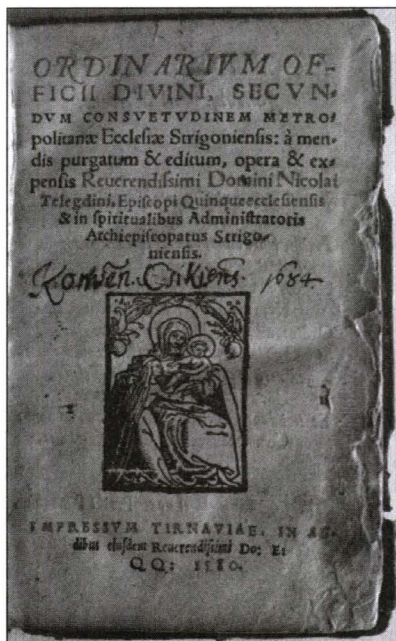 ORDINARIVM OF-
FICII DIVINI, SECVN-
DVM CONSVETVDINEM METRO-
politanæ Ecclesiæ Strigoniensis: à men-
dis purgatum & editum, opera & ex-
pensis Reuerendissimi Domini Nicolai
Telegdini, Episcopi Quinqueecclesiensis
& in spiritualibus Administratoris
Archiepiscopatus Strigo-
niensis.
Conven. Csikiens. 1684
IMPRESSVM TIRNAVIAE, IN AE-
dibus eiusdem Reuerendissimi Do: E:
QQ: 1580.